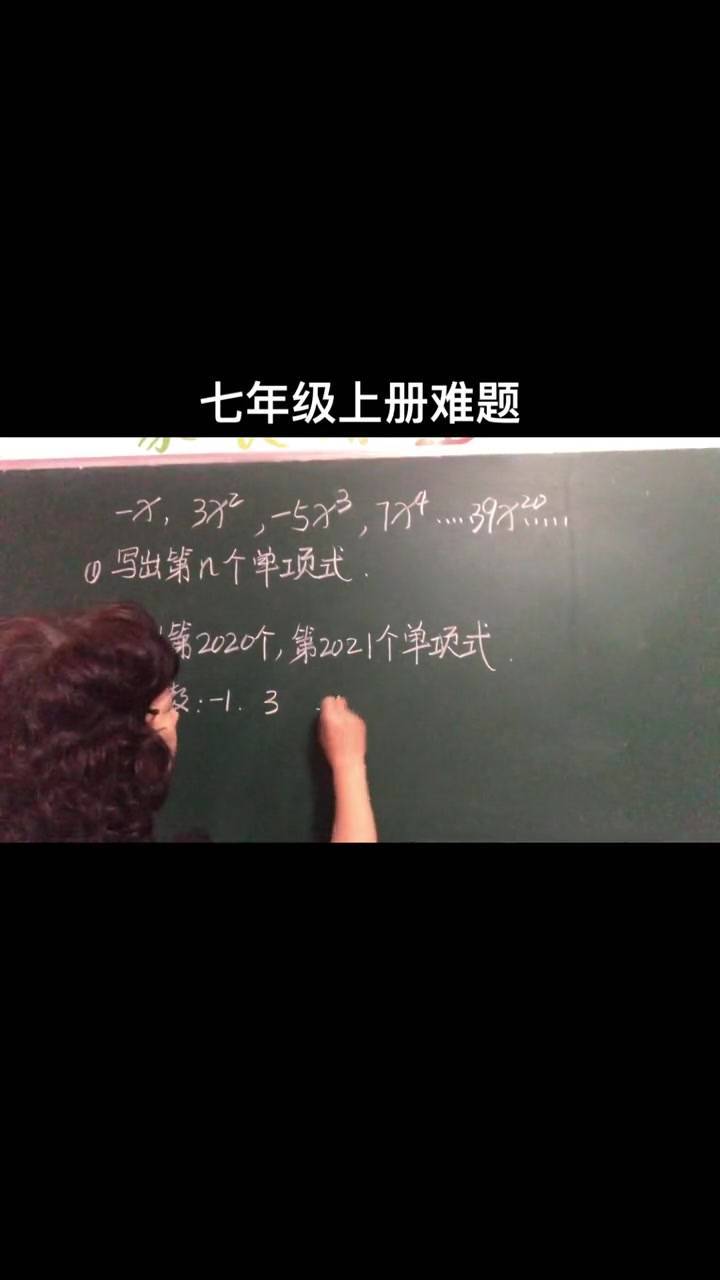 七年级上册难题
-x, 3x², -5x³, 7x⁴ ····· 39x²⁰ ·····
① 写出第n个单项式.
第2020个, 第2021个单项式.
数: -1. 3